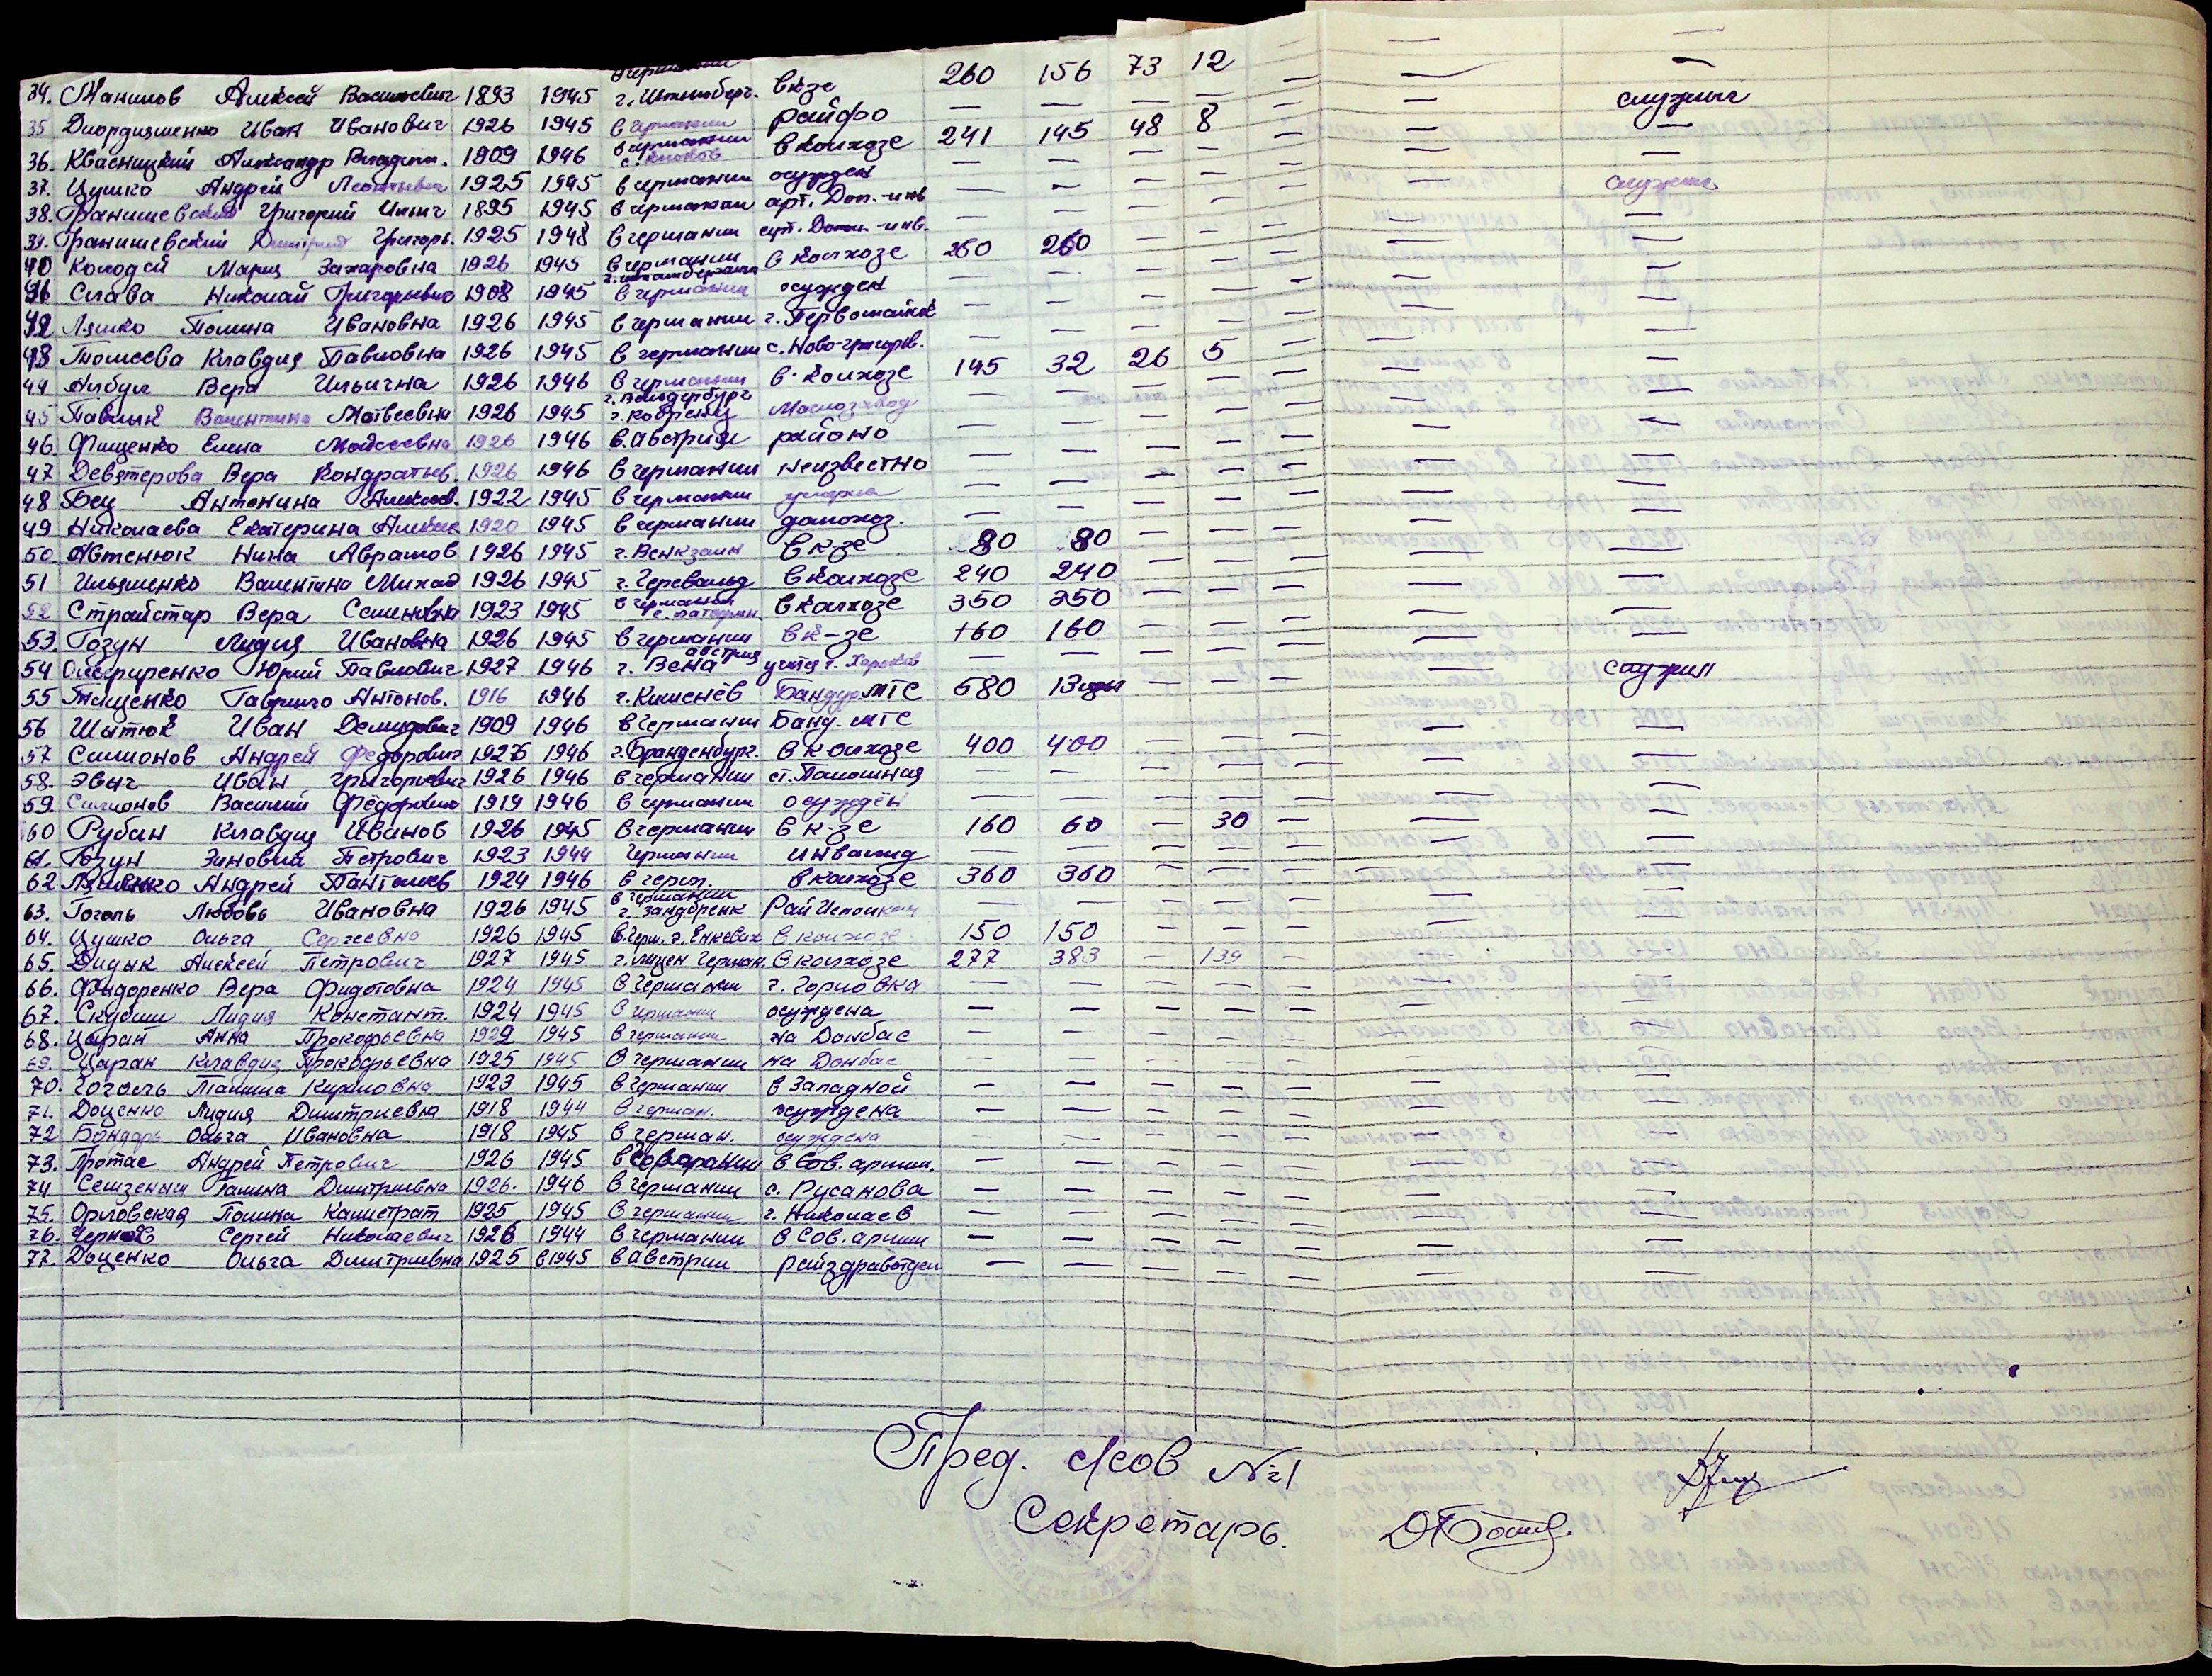 34. Манилов Алексей Васильевич 1893 1945 в Германии г. Штенберг. в к-зе 260 156 73 12 — — —
35 Диордиященко Иван Иванович 1926 1945 в Германии райфо — — — — — — служил
36. Квасницкий Александр Владим. 1909 1946 в Германии в колхозе 241 145 48 8 — — —
37. Цушко Андрей Леонтьевич 1925 1945 в германии осужден — — — — — — —
38. Гранишевский Григорий Ильич 1895 1945 в германии арт. Доп.-инв — — — — — — служил
39. Гранишевский Дмитрий Григорь. 1925 1948 в германии арт. Допом.-инв. — — — — — — —
40 Колодей Мария Захаровна 1926 1945 в германии в колхозе 260 260 — — — — —
Слава Николай Григорьевич 1908 1945 в германии осужден — — — — — — —
42 Ляшко Полина Ивановна 1926 1945 в германии г. Первомайск — — — — — — —
43 Томеева Клавдия Павловна 1926 1945 в германии с. Ново-григорьев. — — — — — — —
44 Албул Вера Ильична 1926 1946 в германии в колхозе 145 32 26 5 — — —
45 Павлык Валентина Матвеевна 1926 1945 г. Кобренц Маслозавод — — — — — — —
46. Фищенко Елена Моисеевна 1926 1946 в Австрии районо — — — — — — —
47 Девятерова Вера Кондратьев. 1926 1946 в германии неизвестно — — — — — — —
48 Бец Антонина Алексеев. 1922 1945 в германии — — — — — — —
49 Николаева Екатерина Алексеев 1920 1945 в германии домохоз. — — — — — — —
50. Автенюк Нина Абрамов 1926 1945 г. Венкзаин в к-зе 80 80 — — — — —
51 Ильяшенко Валентина Михай 1926 1945 г. Черевальд в колхозе 240 240 — — — — —
52 Страйстар Вера Семеновна 1923 1945 в германии в колхозе 350 350 — — — — —
53. Гозун Лидия Ивановна 1926 1945 в германии в к-зе 160 160 — — — — —
54 Олефиренко Юрий Павлович 1927 1946 г. Вена австрия учится г. Харьков — — — — — — служил
55 Тищенко Гаврило Антонов. 1916 1946 г. Кишенёв Бандур МТС 680 13 цен — — — —
56 Шытюк Иван Демидович 1909 1946 в Германии Банд. МТС — —
57 Симонов Андрей Федорович 1926 1946 г. Бранденбург. в колхозе 400 400 — — — — —
58. Эвич Иван Григорьевич 1926 1946 в германии ст. Помошная — — — — — — —
59. Симонов Василий Фёдорович 1914 1946 в германии осуждён — — — — — — —
60 Рубан Клавдия Иванов 1926 1945 в германии в к-зе 160 60 — 30 — — —
61. Гозун Зиновий Петрович 1923 1944 Германии инвалид — — — — — — —
62 Ляшенко Андрей Пантелеев 1924 1946 в герм. в колхозе 360 360 — — — — —
63. Гоголь Любовь Ивановна 1926 1945 в Германии г. Зандоренк Рай Исполком — — — — — — —
64. Цушко Ольга Сергеевна 1926 1945 в Герм. г. Енкевах в колхозе 150 150 — — — — —
65. Дидык Алексей Петрович 1927 1945 г. Лицен Герман. в колхозе 277 383 — 139 — — —
66. Фидоренко Вера Фидотовна 1924 1945 в Германии г. Горловка — — — — — — —
67. Скубии Лидия Констант. 1924 1945 в германии осуждена — — — — — — —
68. Царан Анна Прокофьевна 1929 1945 в германии на Донбас — — — — — — —
69. Царан Клавдия Прокофьевна 1925 1945 в германии на Донбас — — — — — — —
70. Гоголь Галина Кириловна 1923 1945 в германии в Западной — — — — — — —
71. Доценко Лидия Дмитриевна 1918 1944 в герман. осуждена — — — — — — —
72 Бондарь Ольга Ивановна 1918 1945 в герман. осуждена — — — — — — —
73. Протас Андрей Петрович 1926 1945 в германии в Сов. армии. — — — — — — —
74 Галина Дмитриевна 1926. 1946 в германии с. Русанова — — — — — — —
75. Орловская Полина Калистрат 1925 1945 в германии г. Николаев — — — — — — —
76. Чернов Сергей Николаевич 1926 1944 в германии в Сов. армии — — — — — — —
77. Доценко Ольга Дмитриевна 1925 в 1945 в Австрии райздравотдел — — — — — — —
Пред. №1
Секретарь.